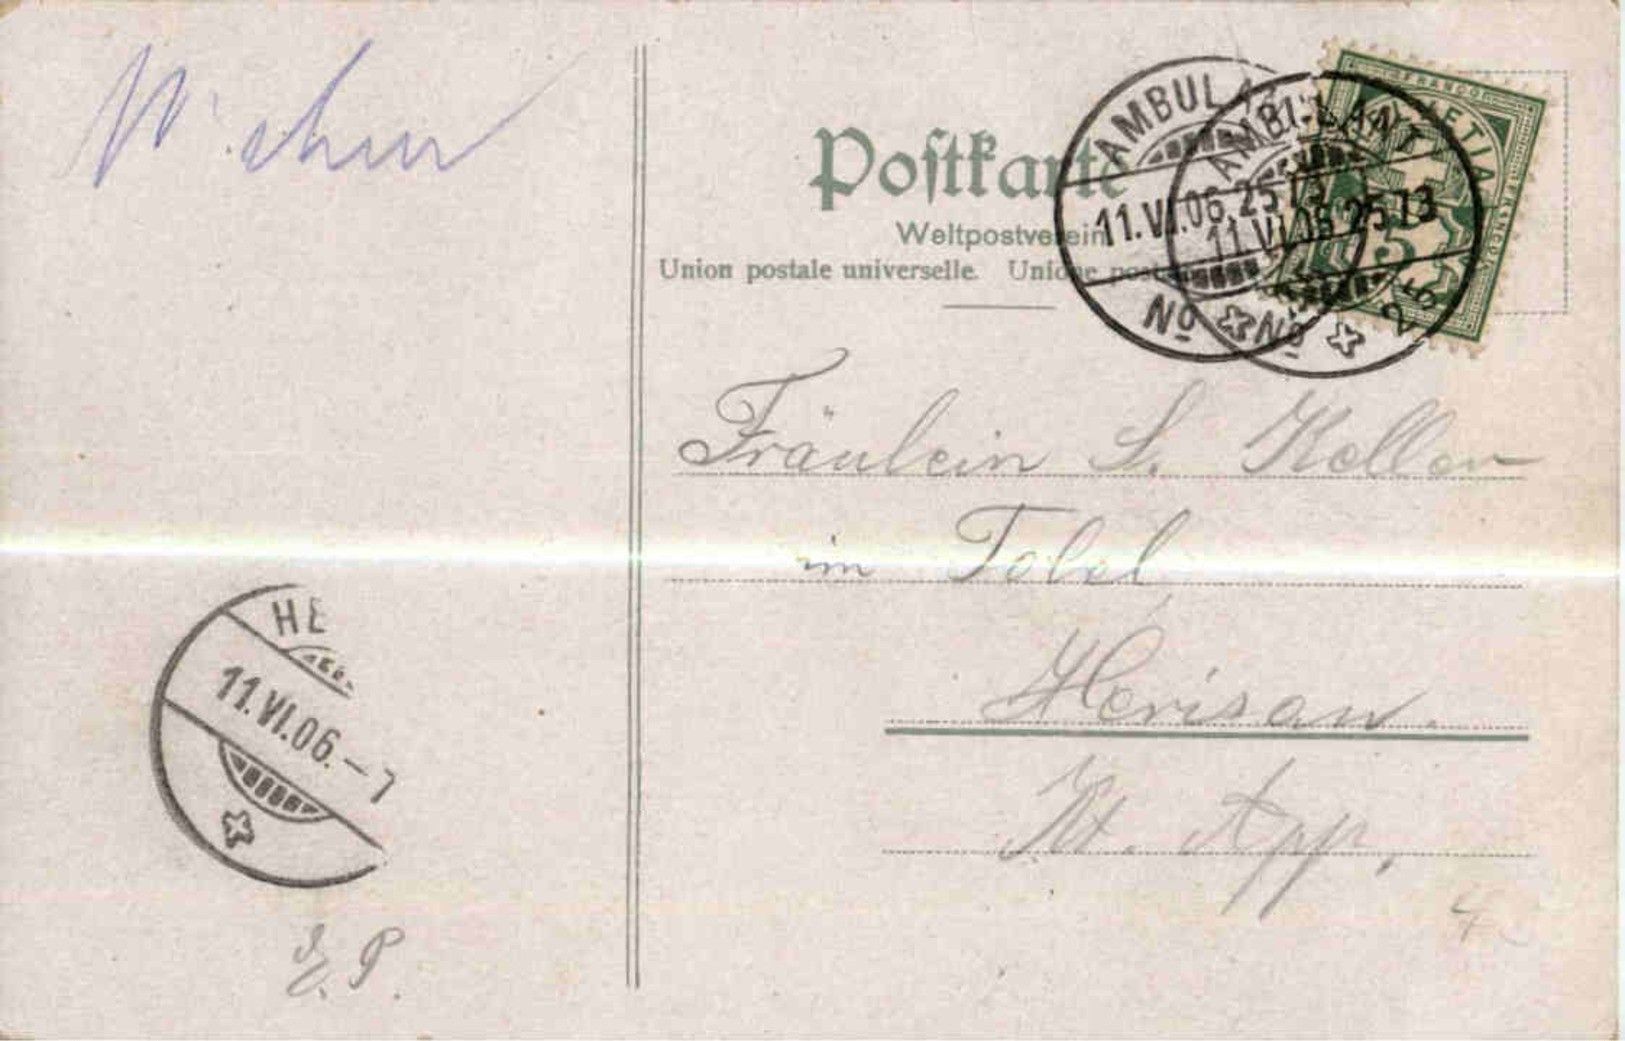 Postkarte
Weltpostverein
Union postale universelle. Unione postale
AMBULANT
11.VI.06 2513
No
AMBULANT
11.VI.06 2513
No 25
FRANCO
HELVETIA
5
Fräulein S. Keller
im Tobel
Herisau.
Kt. App.
4
HE
11.VI.06.–7
E. P.